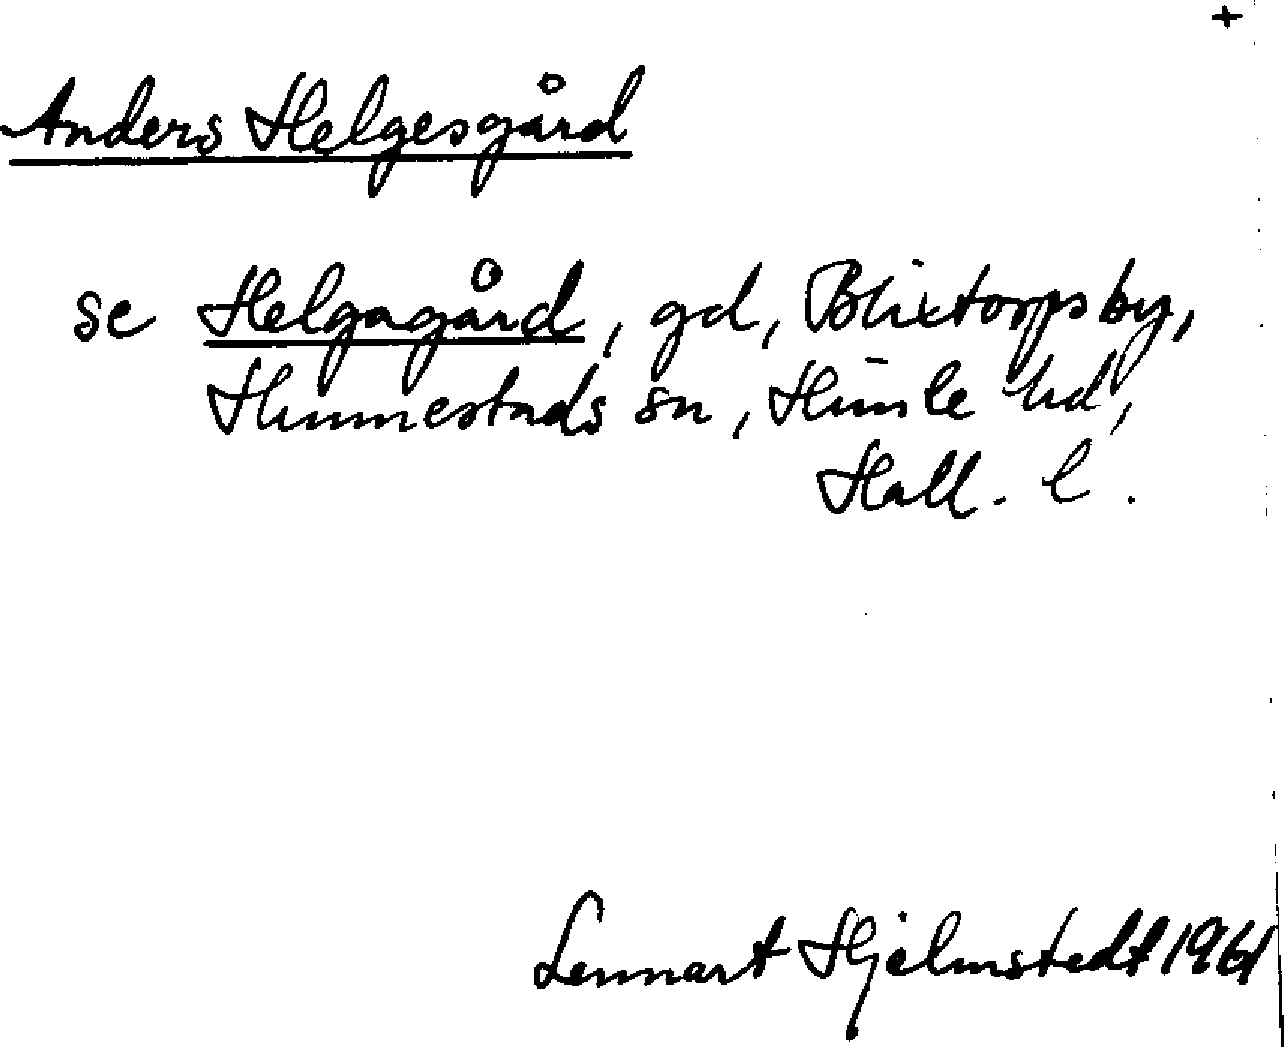 +
Anders Helgesgård
se Helgagård, gd, Blixtorps by,
Hunnestads sn, Himle hd,
Hall. l.
Lennart Hjelmstedt 1961